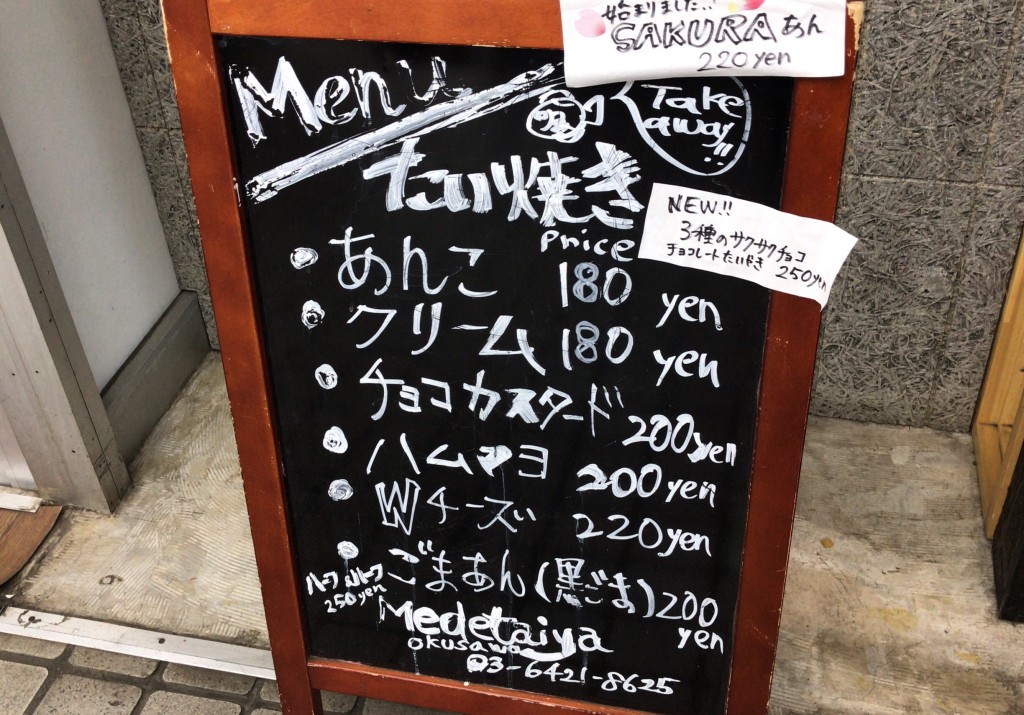 始まりました!!
SAKURAあん
220yen
Menu
Take away!!
たい焼き
NEW!!
3種のサクサクチョコ
チョコレートたいやき 250yen
Price
あんこ 180 yen
クリーム 180 yen
チョコカスタード 200yen
ハムマヨ 200yen
Wチーズ 220yen
ごまあん(黒ごま) 200 yen
ハーフ&ハーフ
250yen
Medetaiya
okusawa
03-6421-8625